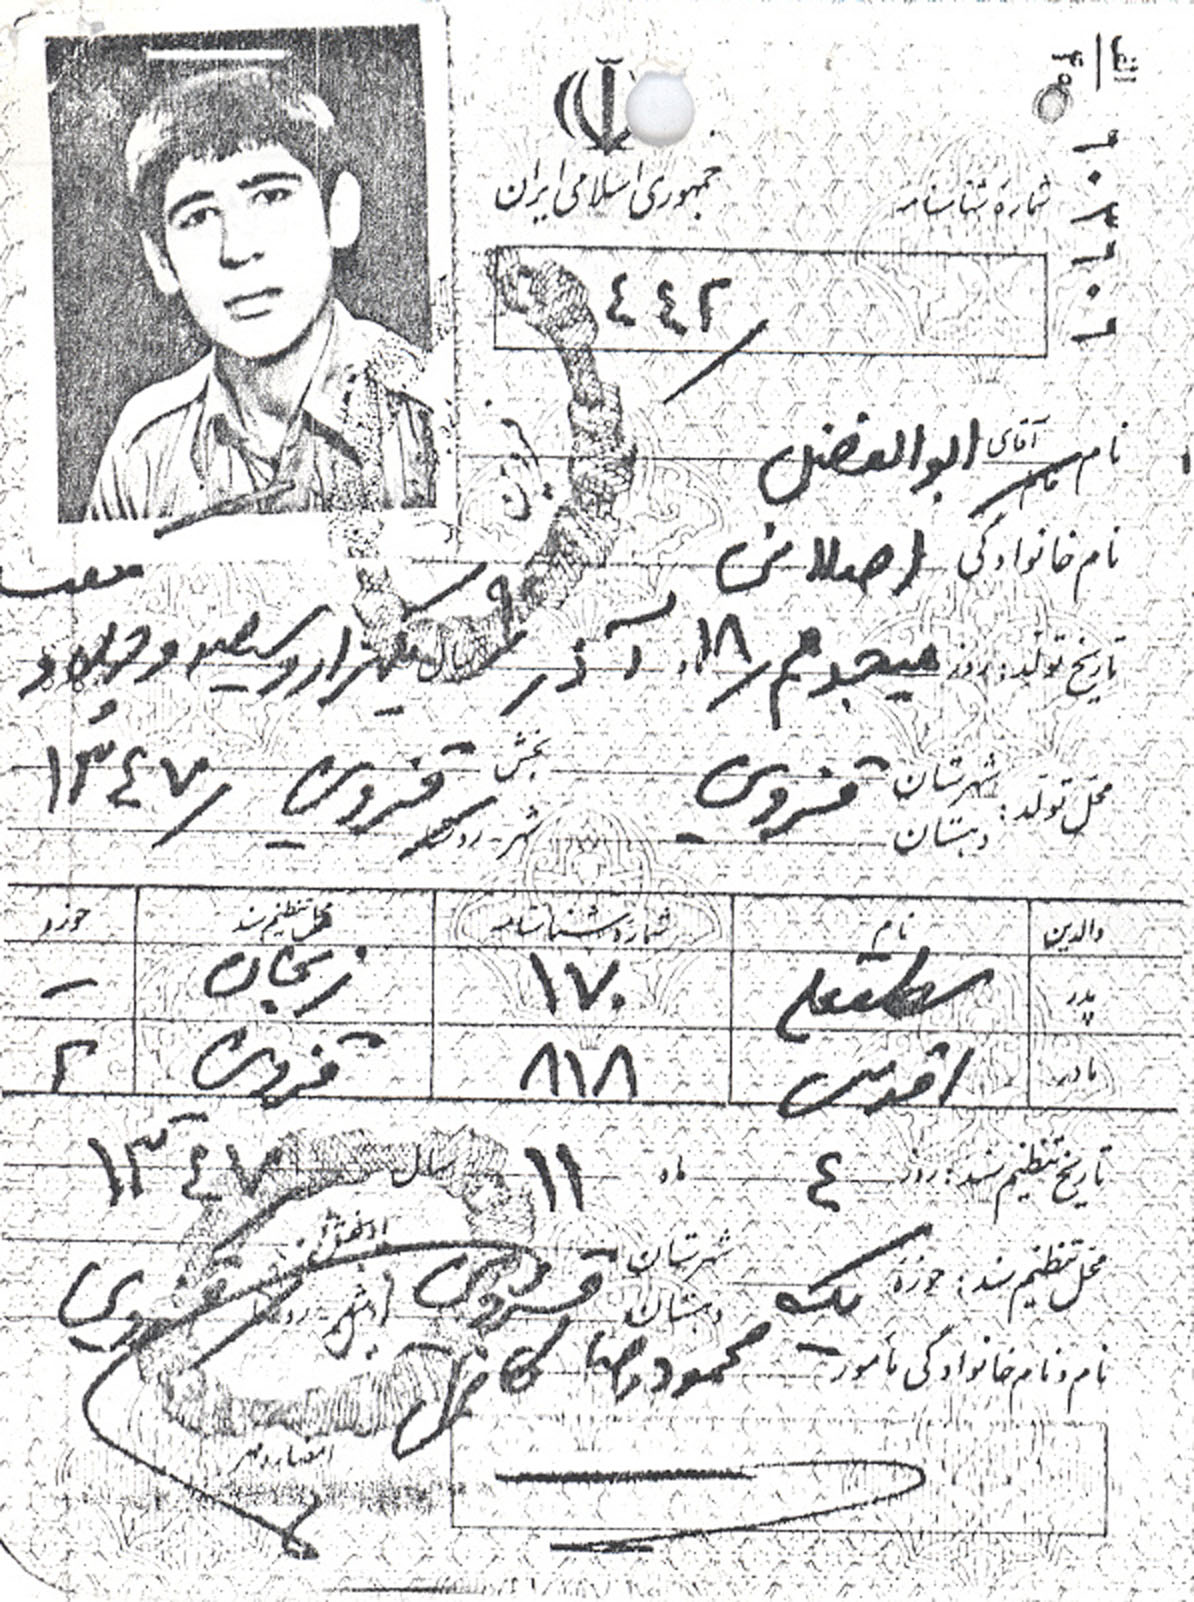 جمهوری اسلامی ایران
شماره شناسنامه
٤٤٢
نام آقای ابوالفضل
نام خانوادگی اصلانی
تاریخ تولد: روز هیجدهم ۱۸ آذر سال یکهزار و سیصد و چهل و
هفت
محل تولد: شهرستان قزوین بخش قزوین ۱۳٤۷
دهستان شهر - روستا
والدین نام شماره شناسنامه محل تنظیم سند حوزه
پدر ۱۷۰ زنجان –
مادر اقدس ۸۱۸ قزوین ۲
تاریخ تنظیم سند: روز ٤ ماه ۱۱ سال ۱۳٤۷
محل تنظیم سند: حوزه یک شهرستان قزوین بخش قزوین
دهستان شهر - روستا
نام و نام خانوادگی مأمور محمودرضا
امضاء و مهر